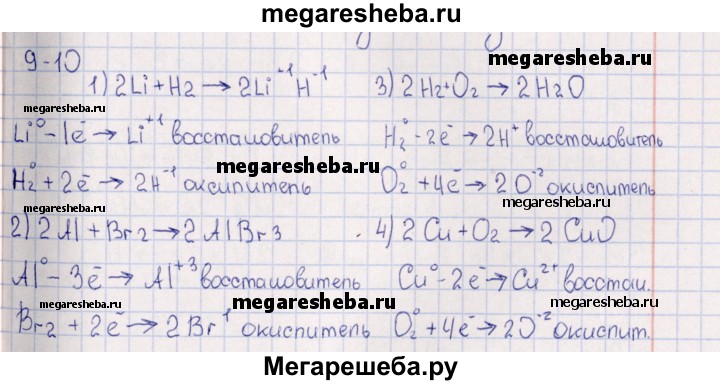 megaresheba.ru
9-10
megaresheba.ru
1) 2Li + H2 → 2Li⁺¹H⁻¹ 3) 2H2+O2 → 2H2O
megaresheba.ru megaresheba.ru
Li⁰ - 1ē → Li⁺¹ восстановитель H2⁰ - 2ē → 2H⁺ восстановитель
megaresheba.ru
H2⁰ + 2ē → 2H⁻¹ окислитель O2⁰ + 4ē → 2O⁻² окислитель
megaresheba.ru megaresheba.ru
2) 2Al + Br2 → 2AlBr3 4) 2Cu + O2 → 2CuO
megaresheba.ru
Al⁰ - 3ē → Al⁺³ восстановитель Cu⁰ - 2ē → Cu²⁺ восстан.
megaresheba.ru megaresheba.ru megaresheba.ru
Br2 + 2ē → 2Br⁻¹ окислитель O2⁰ + 4ē → 2O⁻² окислит.
Мегарешеба.ру